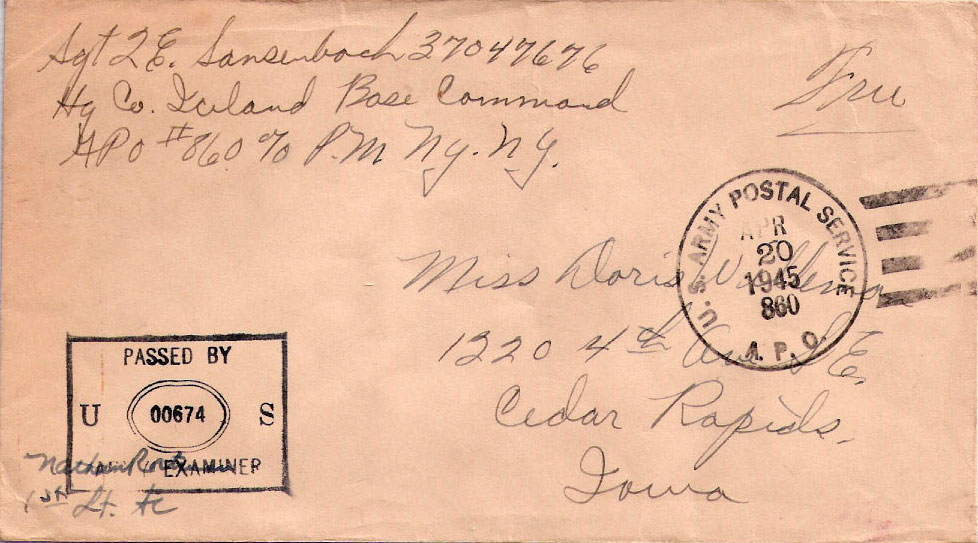 Sgt L E. Sansenbach 37047676
Hq Co. Iceland Base Command
APO #860 % P.M. Ny. Ny.
Free
U. S. ARMY POSTAL SERVICE
APR
20
1945
860
A. P. O.
Miss Doris
1220 4th Ave S E.
Cedar Rapids,
Iowa
PASSED BY
U 00674 S
EXAMINER
Nathan
1st Lt.